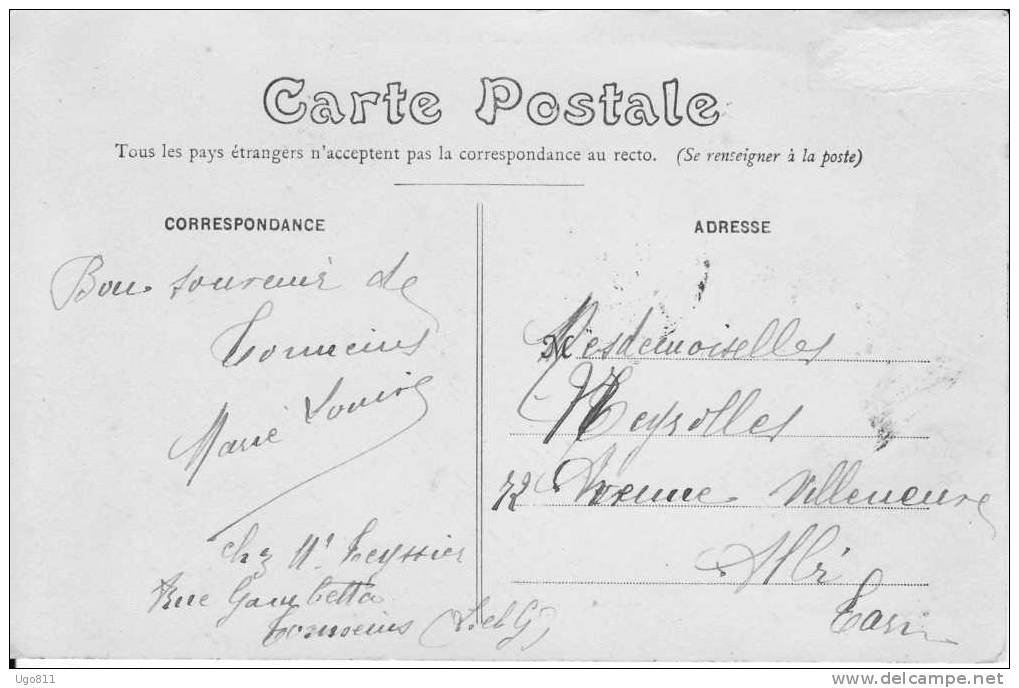 Carte Postale
Tous les pays étrangers n'acceptent pas la correspondance au recto. (Se renseigner à la poste)
CORRESPONDANCE
Bon souvenir de
Tonneins
Marie Louise
chez Mr Teyssier
Rue Gambetta
Tonneins (L. et G)
ADRESSE
Mesdemoiselles
Meyrolles
72 Avenue Villeneuve
Albi
Tarn
Ugo811
www.delcampe.net